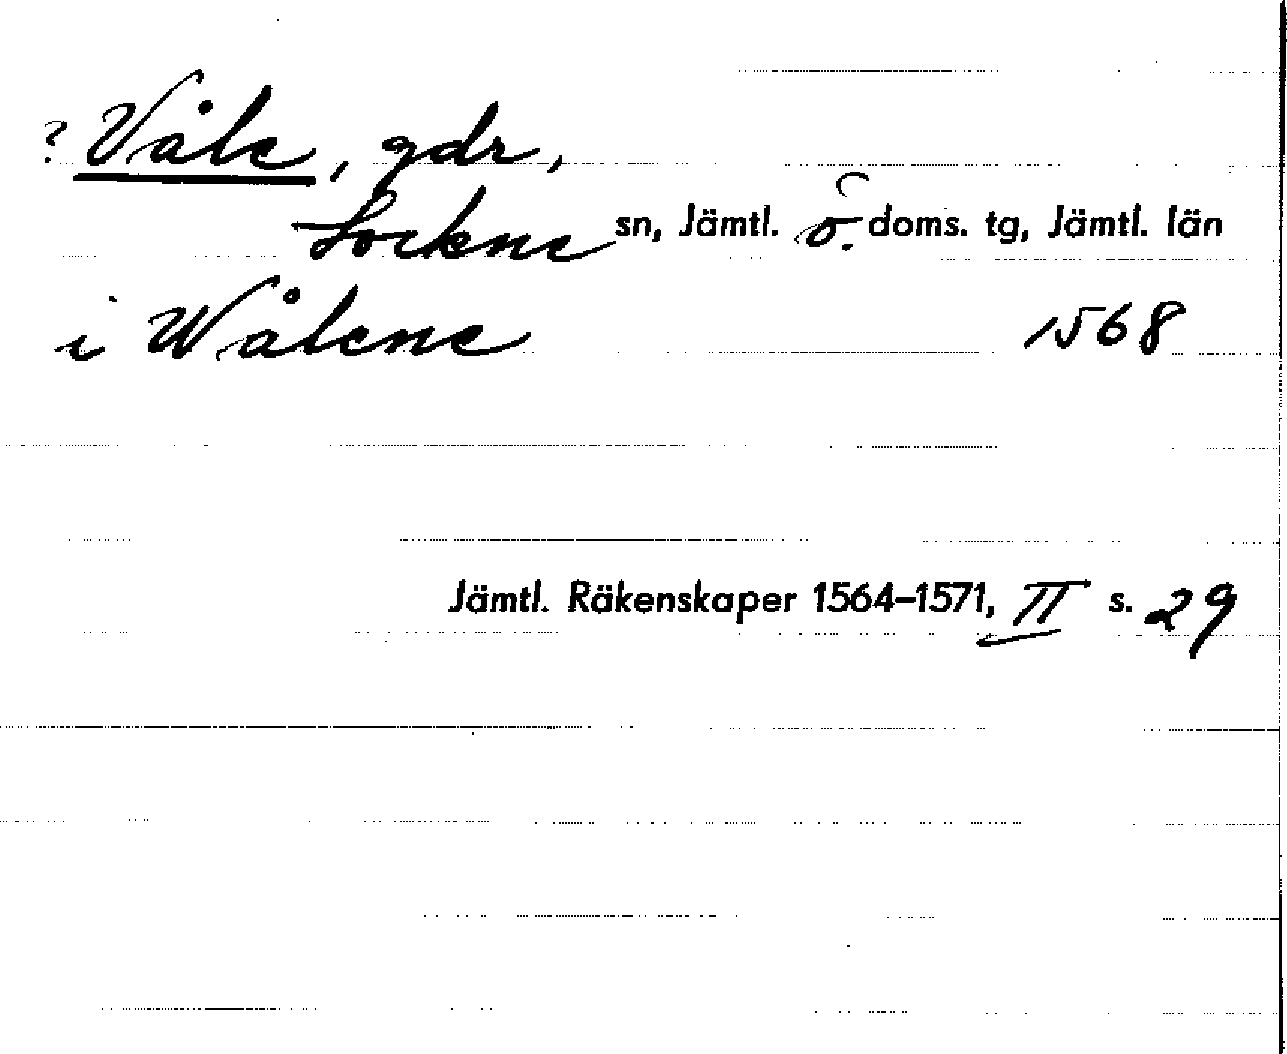 ? Våle, gdr,
Lockne sn, Jämtl. ö. doms. tg, Jämtl. län
i Wålene 1568
Jämtl. Räkenskaper 1564–1571, II s. 29